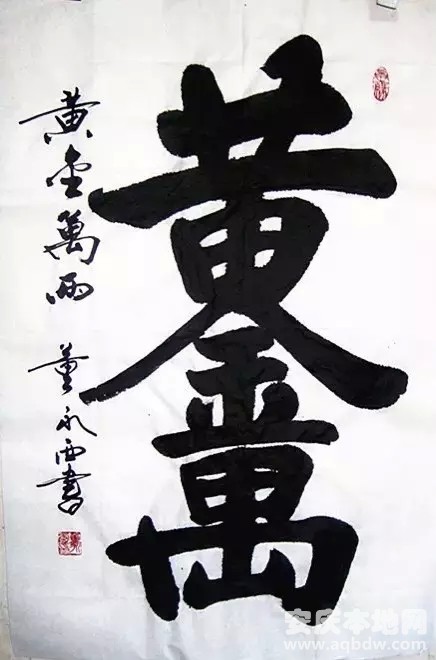 黄金萬兩
黄金萬兩
董永西書
安庆本地网
www.aqbdw.com